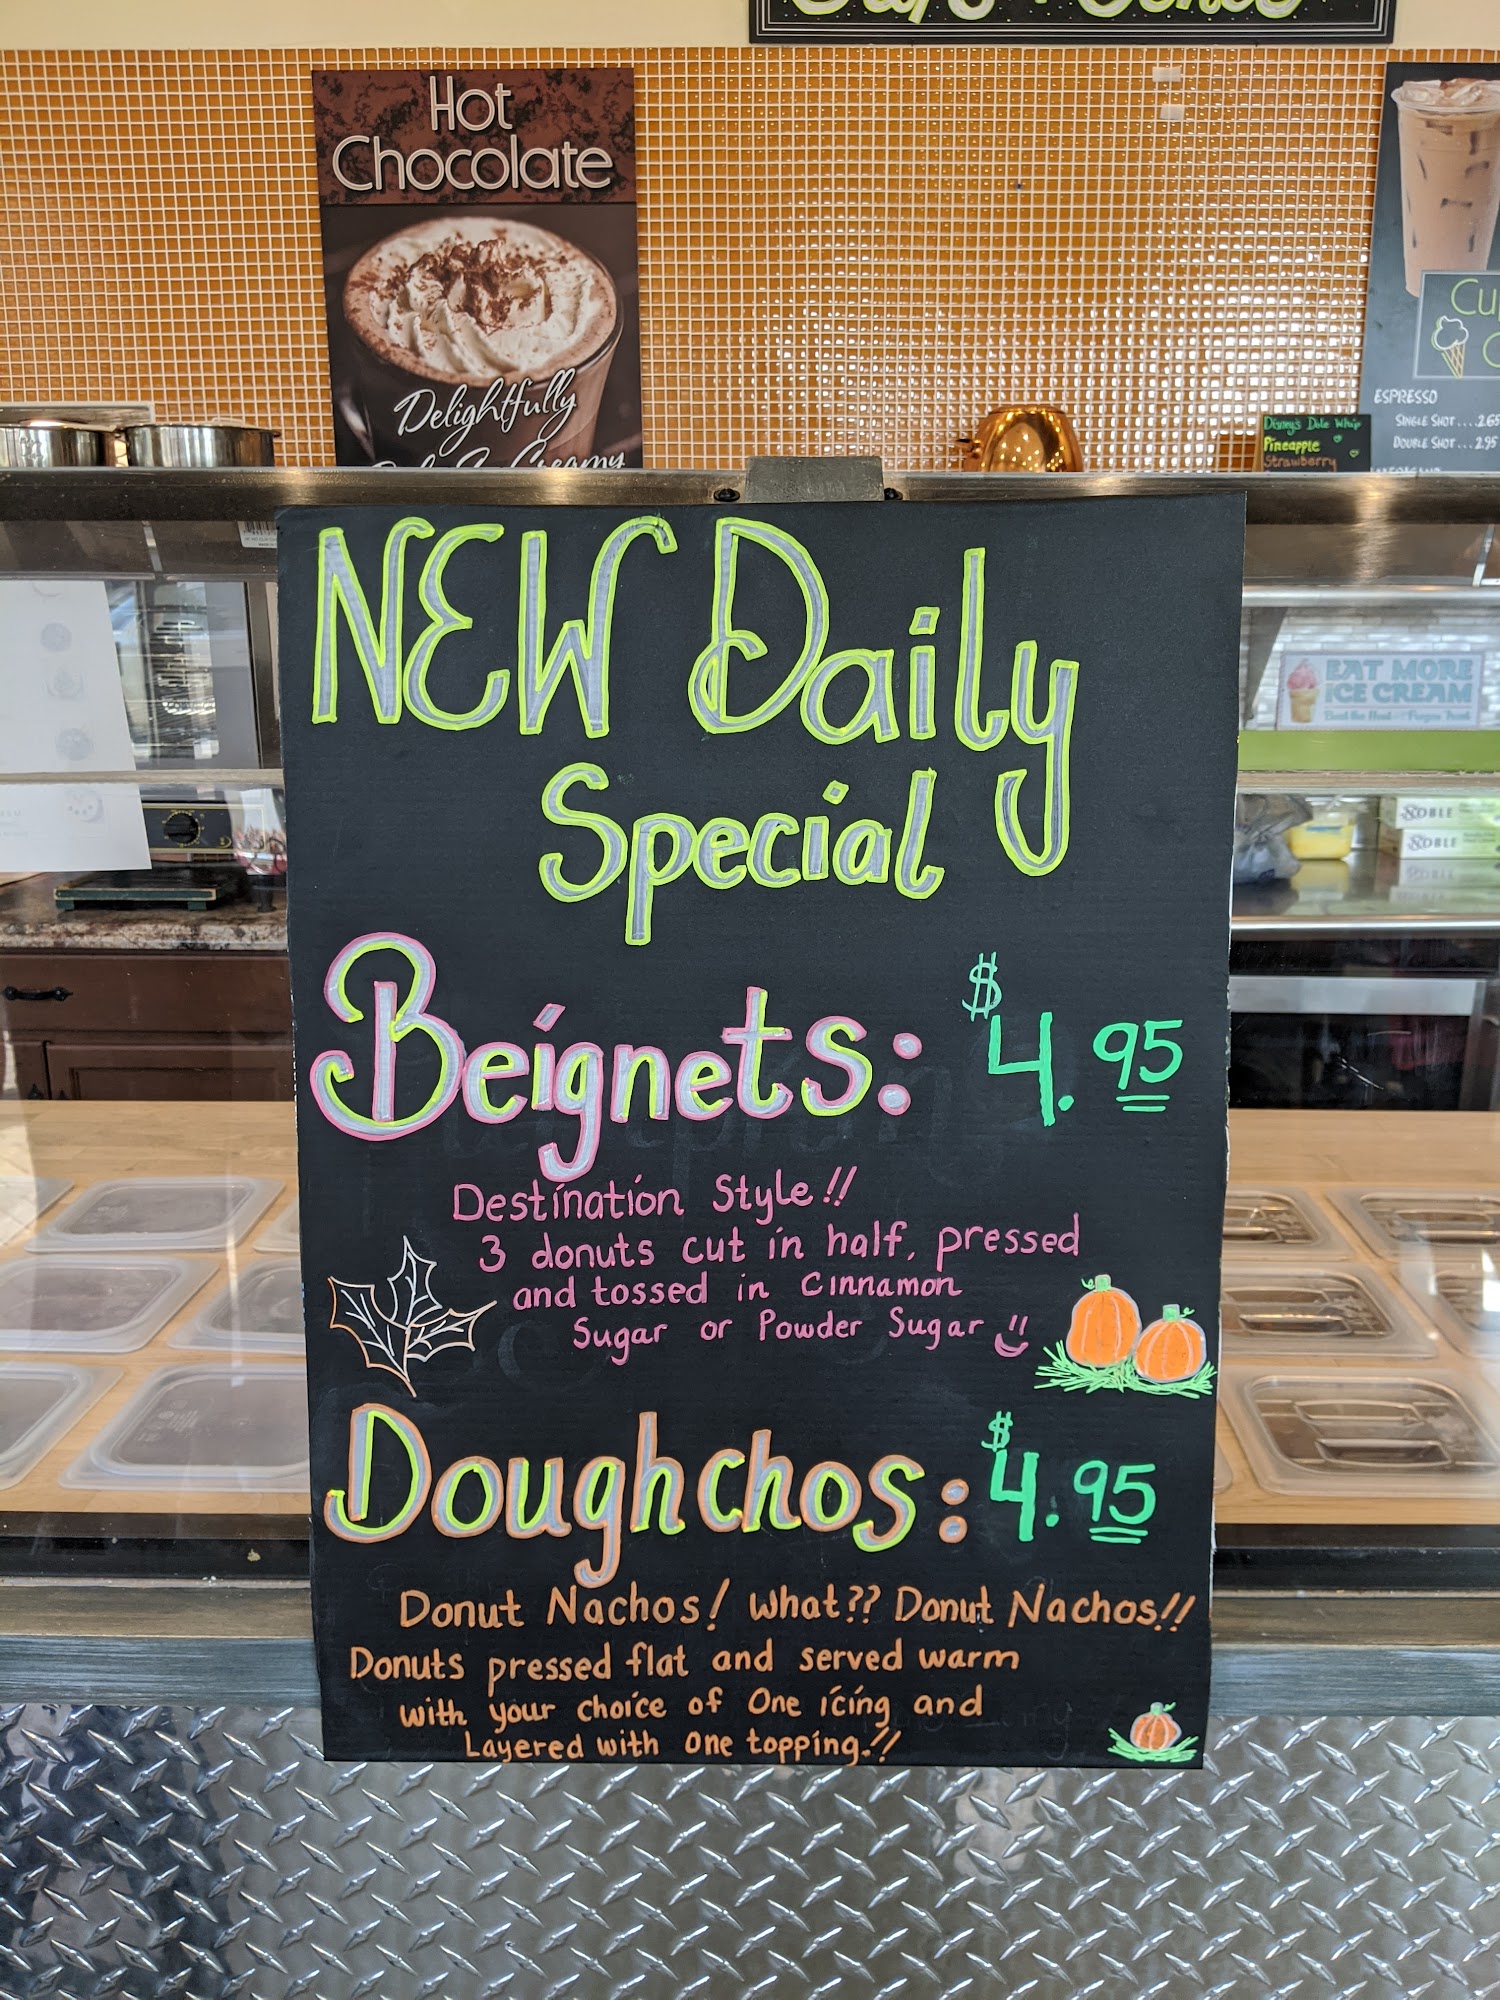 Hot
Chocolate
Delightfully
Creamy
ESPRESSO
SINGLE SHOT....2.65
DOUBLE SHOT....2.95
Disney's Dole Whip
Pineapple
Strawberry
EAT MORE
ICE CREAM
NOBLE
NOBLE
NEW Daily
Special
Beignets: $4.95
Destination Style!!
3 donuts cut in half, pressed
and tossed in Cinnamon
Sugar or Powder Sugar
Doughchos: $4.95
Donut Nachos! what?? Donut Nachos!!
Donuts pressed flat and served warm
with your choice of One icing and
Layered with One topping.!!